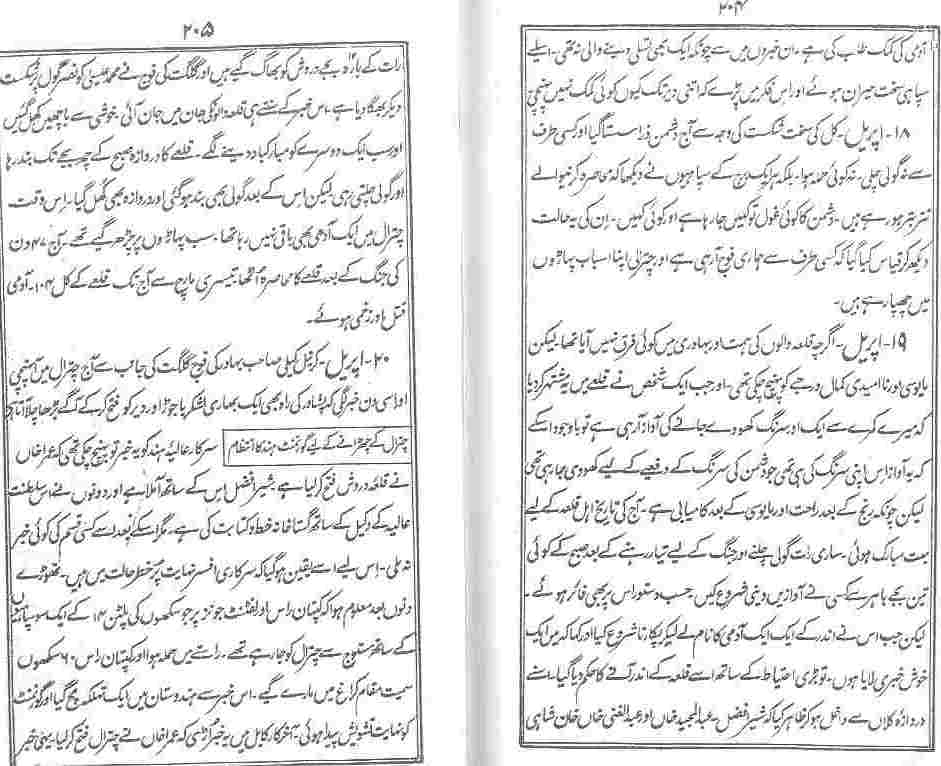 ۲۰۴
آدمی کی کمک طلب کی ہے۔ ان خبروں میں سے چونکہ ایک بھی تسلی دینے والی نہ تھی۔ اسلیے
سپاہی سخت حیران ہوئے اور اس فکر میں پڑے کہ اتنی دیر تک کیوں کوئی کمک نہیں پہنچی
۱۸۔ اپریل۔ کل کی سخت شکست کی وجہ سے آج دشمن ذرا سستا گیا اور کسی طرف
سے نہ گولی چلی۔ نہ کوئی حملہ ہوا۔ بلکہ ہر ایک برج کے سپاہیوں نے دیکھا کہ محاصرہ کرنیوالے
تتر بتر ہو رہے ہیں۔ دشمن کا کوئی غول تو کہیں جا رہا ہے اور کوئی کہیں۔ ان کی یہ حالت
دیکھ کر قیاس کیا گیا کہ کسی طرف سے ہماری فوج آ رہی ہے اور چترالی اپنا اسباب پہاڑوں
میں چھپا رہے ہیں۔
۱۹۔ اپریل۔ اگرچہ قلعہ والوں کی ہمت اور بہادری میں کوئی فرق نہیں آیا تھا۔ لیکن
مایوسی اور ناامیدی کمال درجے کو پہنچ چکی تھی۔ اور جب ایک شخص نے قلعے میں یہ مشتہر کر دیا
کہ میرے کمرے سے ایک اور سرنگ کھودے جانے کی آواز آ رہی ہے تو باوجود اسکے
کہ یہ آواز اس اپنی سرنگ کی ہی تھی جو دشمن کی سرنگ کے دفعیے کے لیے کھودی جا رہی تھی
لیکن چونکہ رنج کے بعد راحت اور مایوسی کے بعد کامیابی ہے۔ آج کی تاریخ اہل قلعہ کے لیے
بہت مبارک ہوئی۔ ساری رات گولی چلنے اور جنگ کے لیے تیار رہنے کے بعد صبح کے کوئی
تین بجے باہر سے کسی نے آوازیں دینی شروع کیں حسب دستور اس پر بھی فائر ہوئے۔
لیکن جب اس نے اندر کے ایک ایک آدمی کا نام لے لیکر پکارنا شروع کیا اور کہا کہ میں ایک
خوش خبری لایا ہوں۔ تو بڑی احتیاط کے ساتھ اسے قلعہ کے اندر آنے کا حکم دیا گیا۔ اسنے
دروازہ کلاں سے داخل ہو کر ظاہر کیا کہ شیر افضل۔ عبدالمجید خاں اور عبدالغنی خاں خان شاہی
۲۰۵
رات کے بارہ بجے دروش کو بھاگ گیے ہیں اور گلگت کی فوج نے محمد عیسیٰ کو نصر گول پر شکست
دیکر بھگا دیا ہے۔ اس خبر کے سنتے ہی قلعہ والونکی جان میں جان آئی۔ خوشی سے باچھیں کھل گئیں
اور سب ایک دوسرے کو مبارکباد دینے لگے۔ قلعے کا دروازہ صبح کے چھ بجے تک بند رہا
اور گولی چلتی رہی لیکن اس کے بعد گولی بھی بند ہو گئی اور دروازہ بھی کھل گیا۔ اس وقت۔
چترال میں ایک آدمی بھی باقی نہیں رہا تھا۔ سب پہاڑوں پر چڑھ گیے تھے۔ آج ۴۷ دن
کی جنگ کے بعد قلعے کا محاصرہ اٹھا۔ تیسری مارچ سے آج تک قلعے کے کل ۱۰۴۔ آدمی
قتل اور زخمی ہوئے۔
۲۰۔ اپریل۔ کرنیل کیلی صاحب بہادر کی فوج گلگت کی جانب سے آج چترال میں آ پہنچی
اور اسی دن خبر لگی کہ پشاور کی راہ بھی ایک بھاری لشکر باجوڑ اور دیر کو فتح کر کے آگے بڑھا چلا آتا ہے
چترال کے چھڑانے کے لیے گورنمنٹ ہند کا انتظام سرکار عالیۂ ہند کو یہ خبر تو پہنچ چکی تھی کہ عمرا خاں
نے قلعہ دروش فتح کر لیا ہے شیر افضل اس کے ساتھ آ ملا ہے اور دونوں نے اس سلطنت
عالیہ کے وکیل کے ساتھ گستاخانہ خط و کتابت کی ہے۔ مگر اسکے بعد اسے کسی قسم کی کوئی خبر
نہ ملی۔ اس لیے اسے یقین ہو گیا کہ سرکاری افسر نہایت پرخطر حالت میں ہیں۔ تھوڑے
دنوں بعد معلوم ہوا کہ کپتان راس اور لفٹنٹ جونز پر جو سکھوں کی پلٹن ۱۴ کے ایک سو سپاہیوں
کے ساتھ مستوج سے چترال کو جا رہے تھے۔ راستے میں حملہ ہوا اور کپتان راس ۶۰ سکھوں
سمیت مقام کراغ میں مارے گیے۔ اس خبر سے ہندوستان میں ایک تہلکہ مچ گیا اور گورنمنٹ
کو نہایت تشویش پیدا ہوئی۔ آخر کار کابل میں یہ خبر اڑی کہ عمرا خاں نے چترال فتح کر لیا۔ یہی خبر